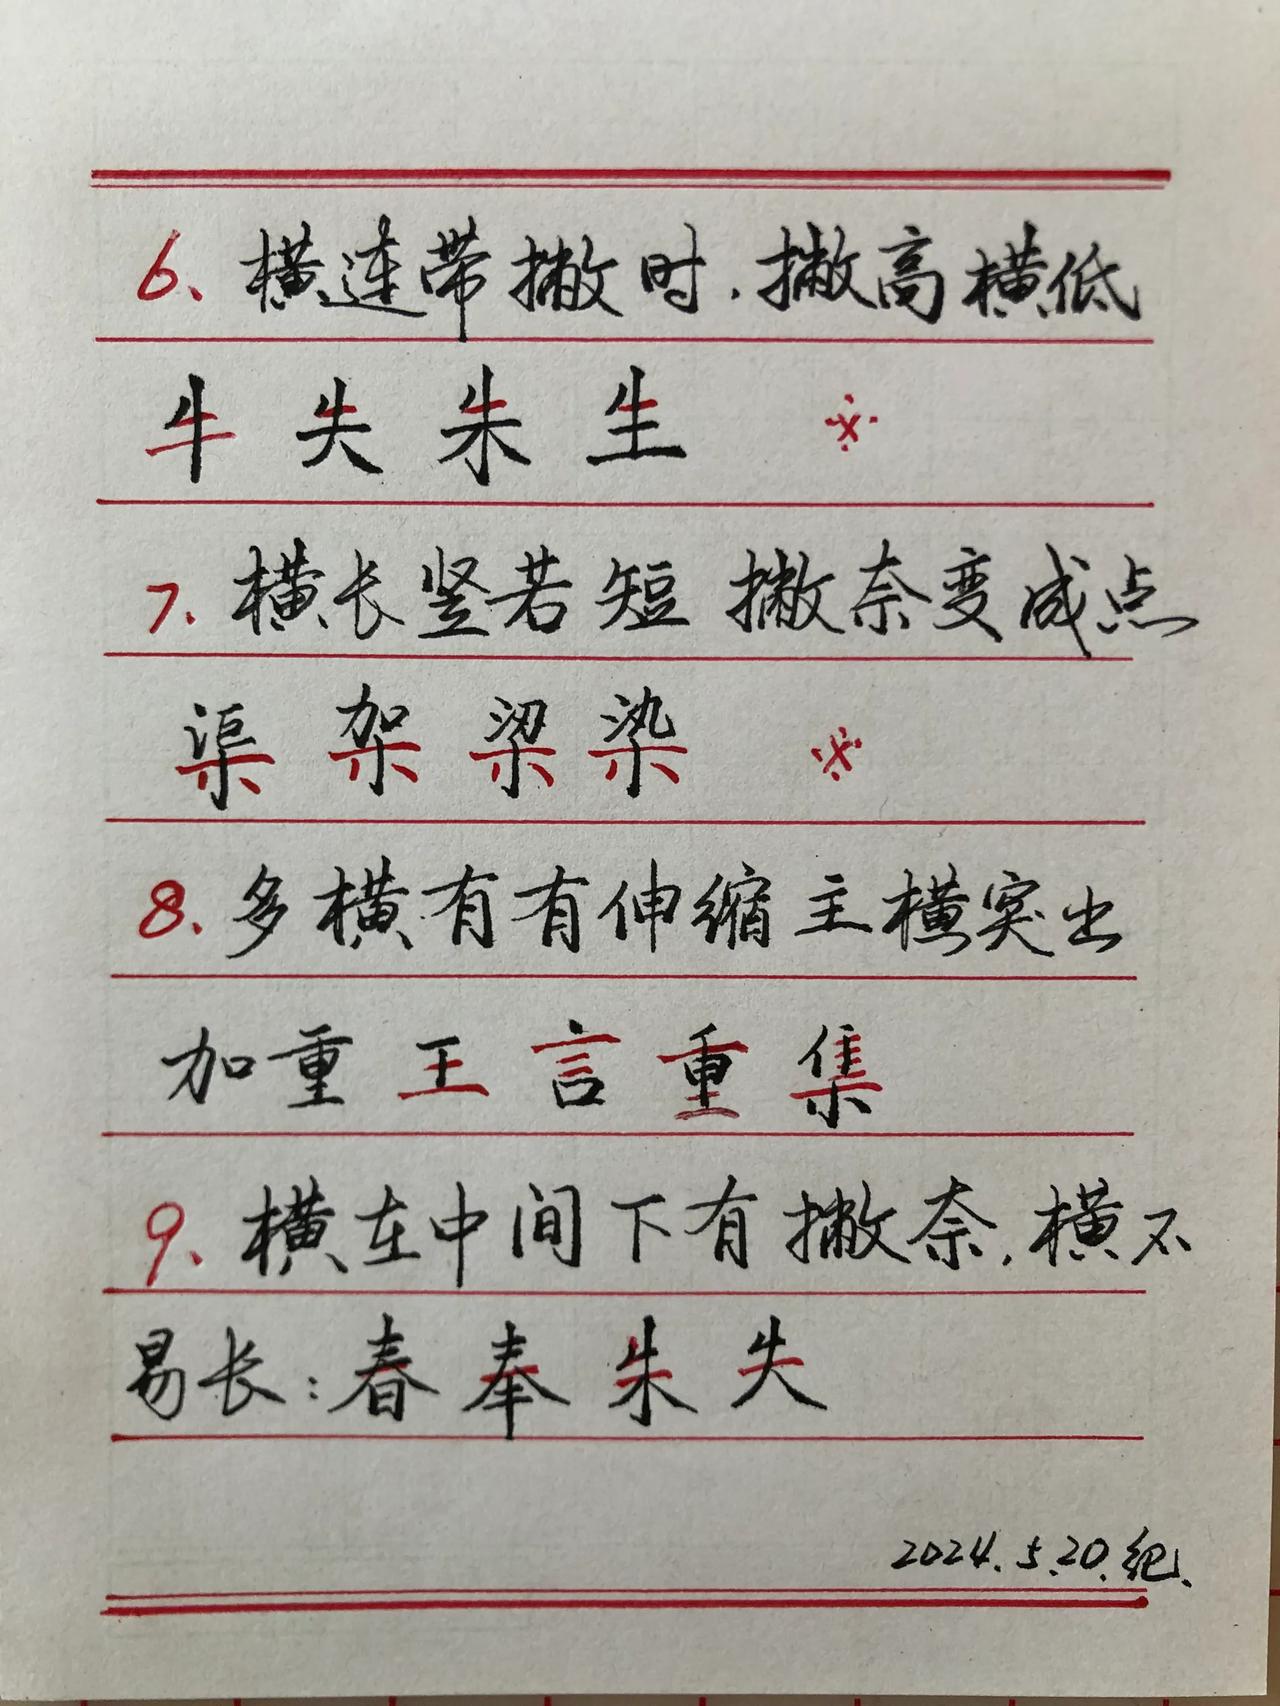 6、横连带撇时.撇高横低
牛 失 朱 生 ※
7.横长竖若短 撇奈变成点
渠 架 梁 染 ※
8.多横有有伸缩主横突出
加重 王 言 重 集
9、横在中间下有撇奈,横不
易长:春 奉 朱 失
2024.5.20.纪.